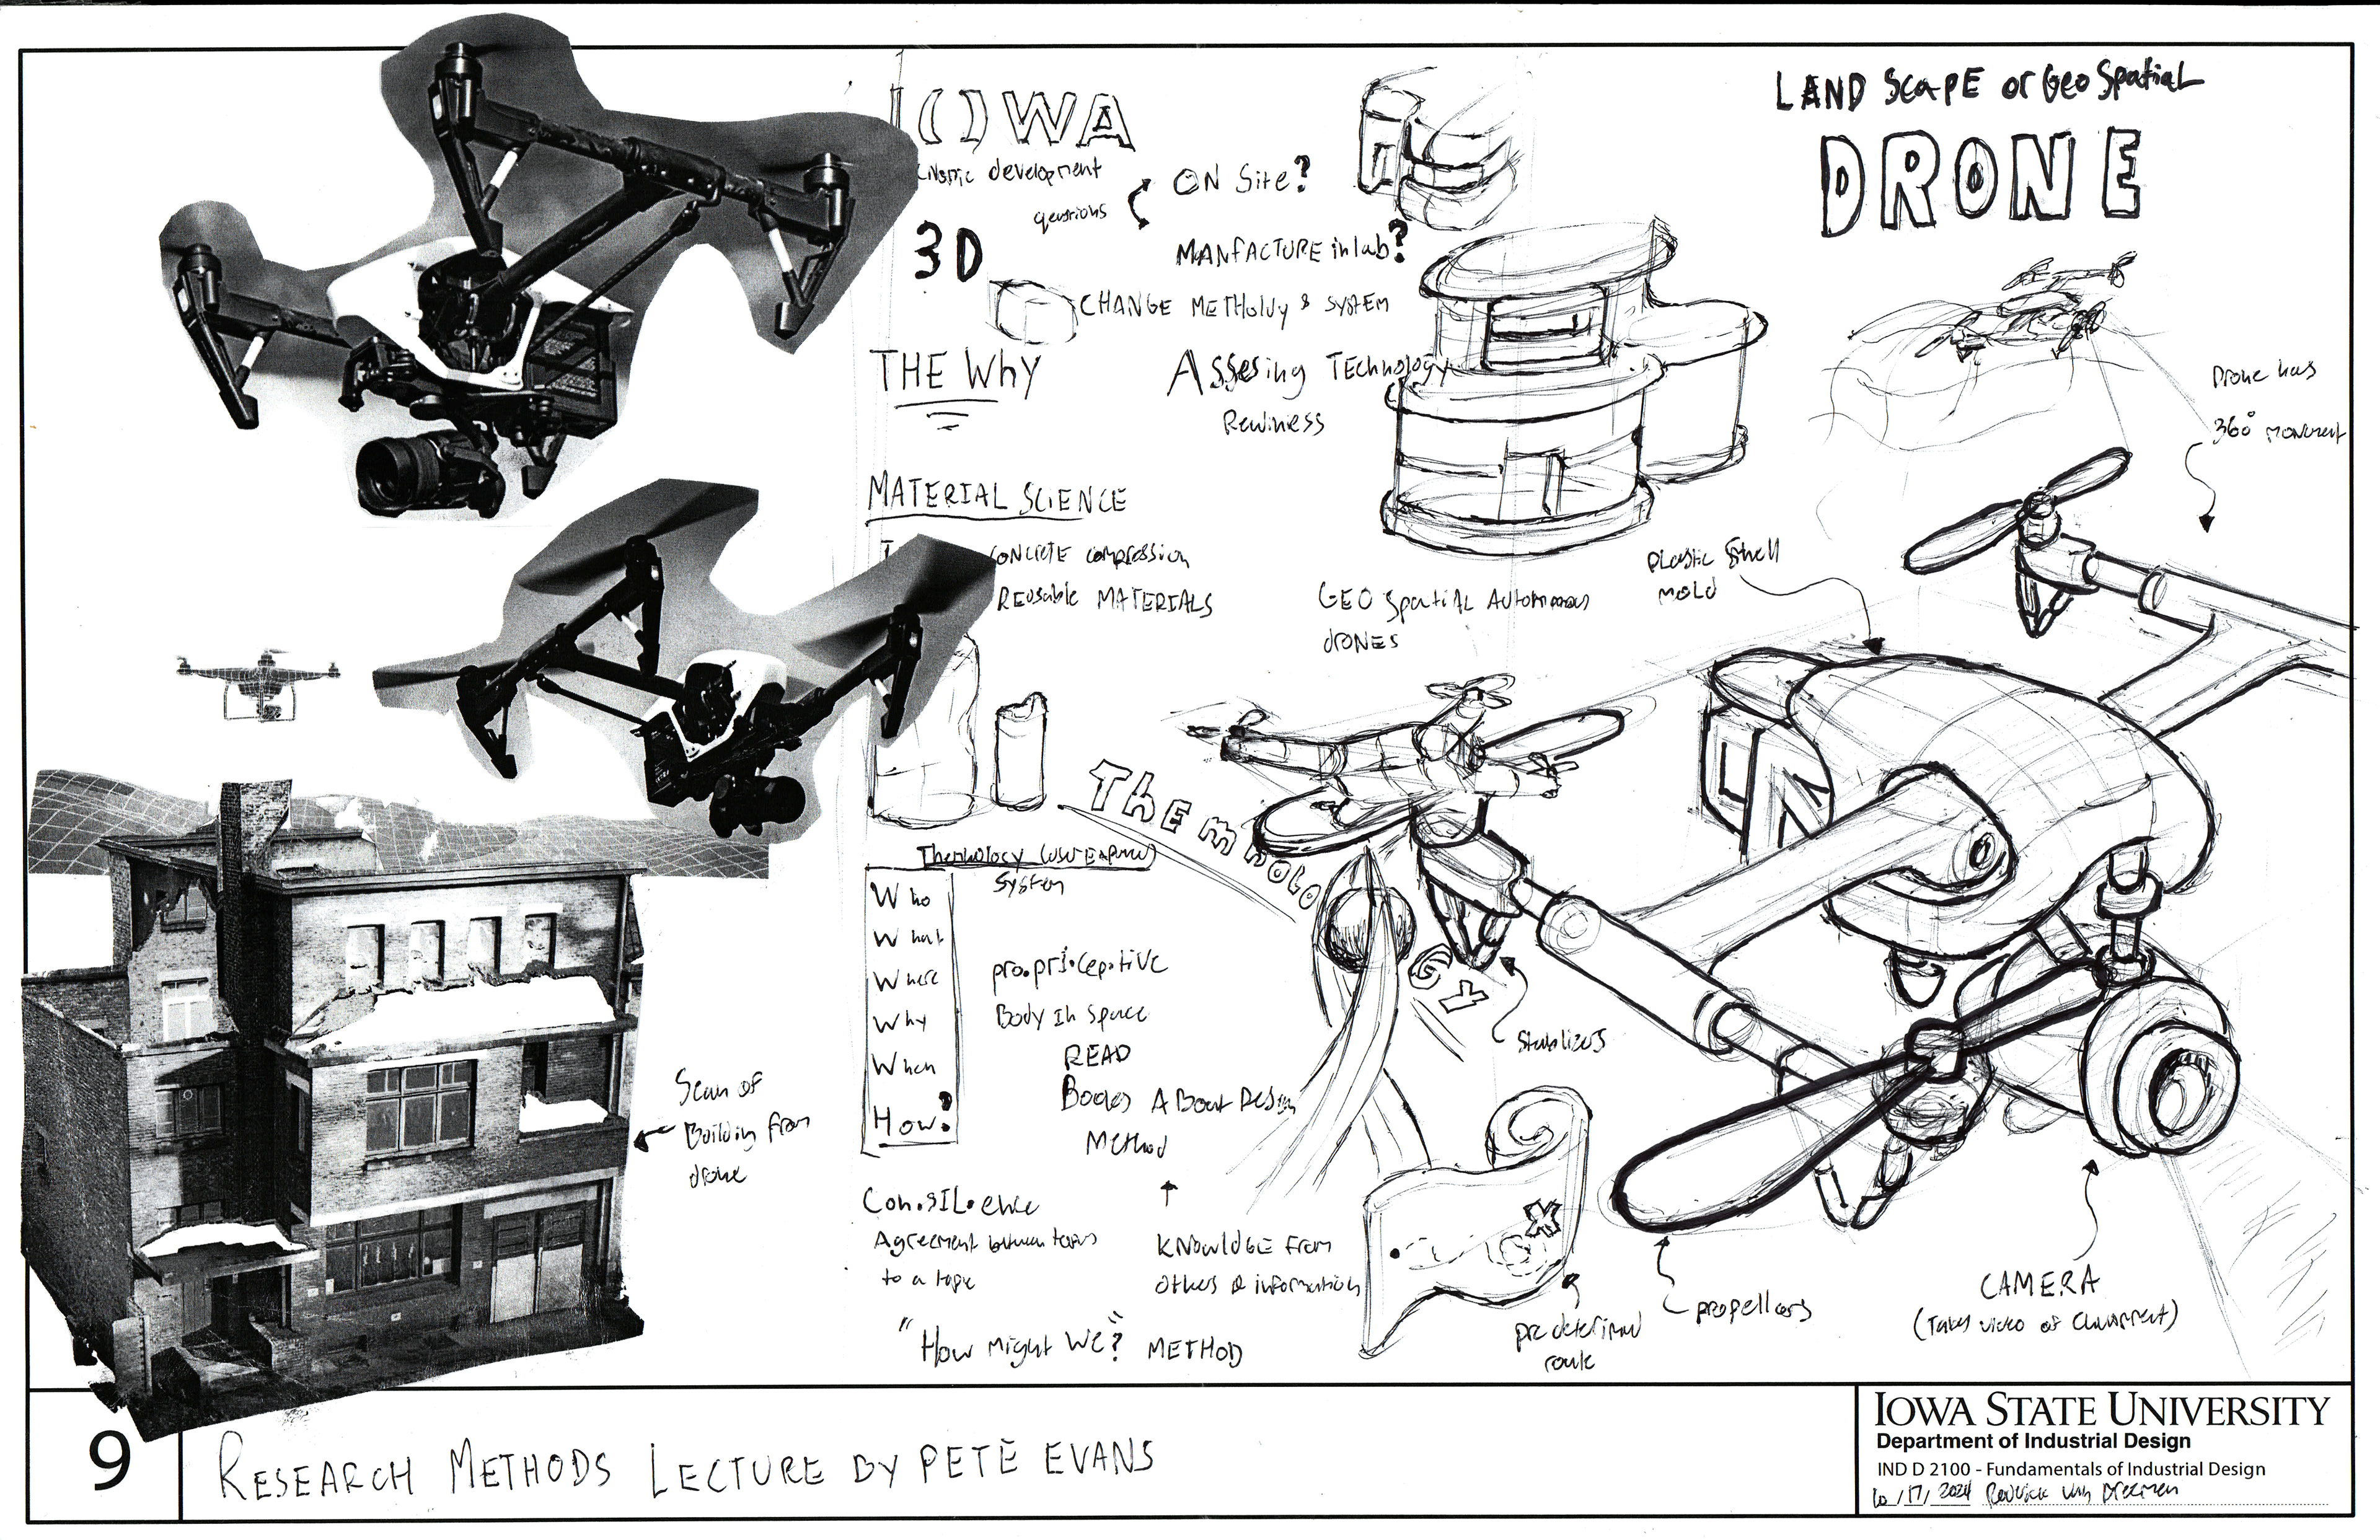 I()WA
development
questions
ON Site?
3D
MANFACTURE in lab?
CHANGE METHOLDY & SYSTEM
THE Why
Assesing TEChnology
Rediness
MATERIAL SCIENCE
ONCRETE compression
REusable MATERIALS
LAND SCAPE or Geo SpatiaL
DRONE
Drone has
360° movement
plastic Shell
mold
GEO Spatial Autonomous
drones
Themnology
System
Who
What
Where
Why
When
How?
pro.pri.cep.tive
Body In Space
READ
Books About Design
Method
Con.SIL.ence
Agreement between
to a topic
KNOwlDGE From
others & information
"How might We"? METHOD
Scan of
Building from
drone
Stabilizers
predeterimed
route
propellars
CAMERA
(Takes video of
9
RESEARCH METHODS LECTURE BY PETE EVANS
IOWA STATE UNIVERSITY
Department of Industrial Design
IND D 2100 - Fundamentals of Industrial Design
10/17/2024